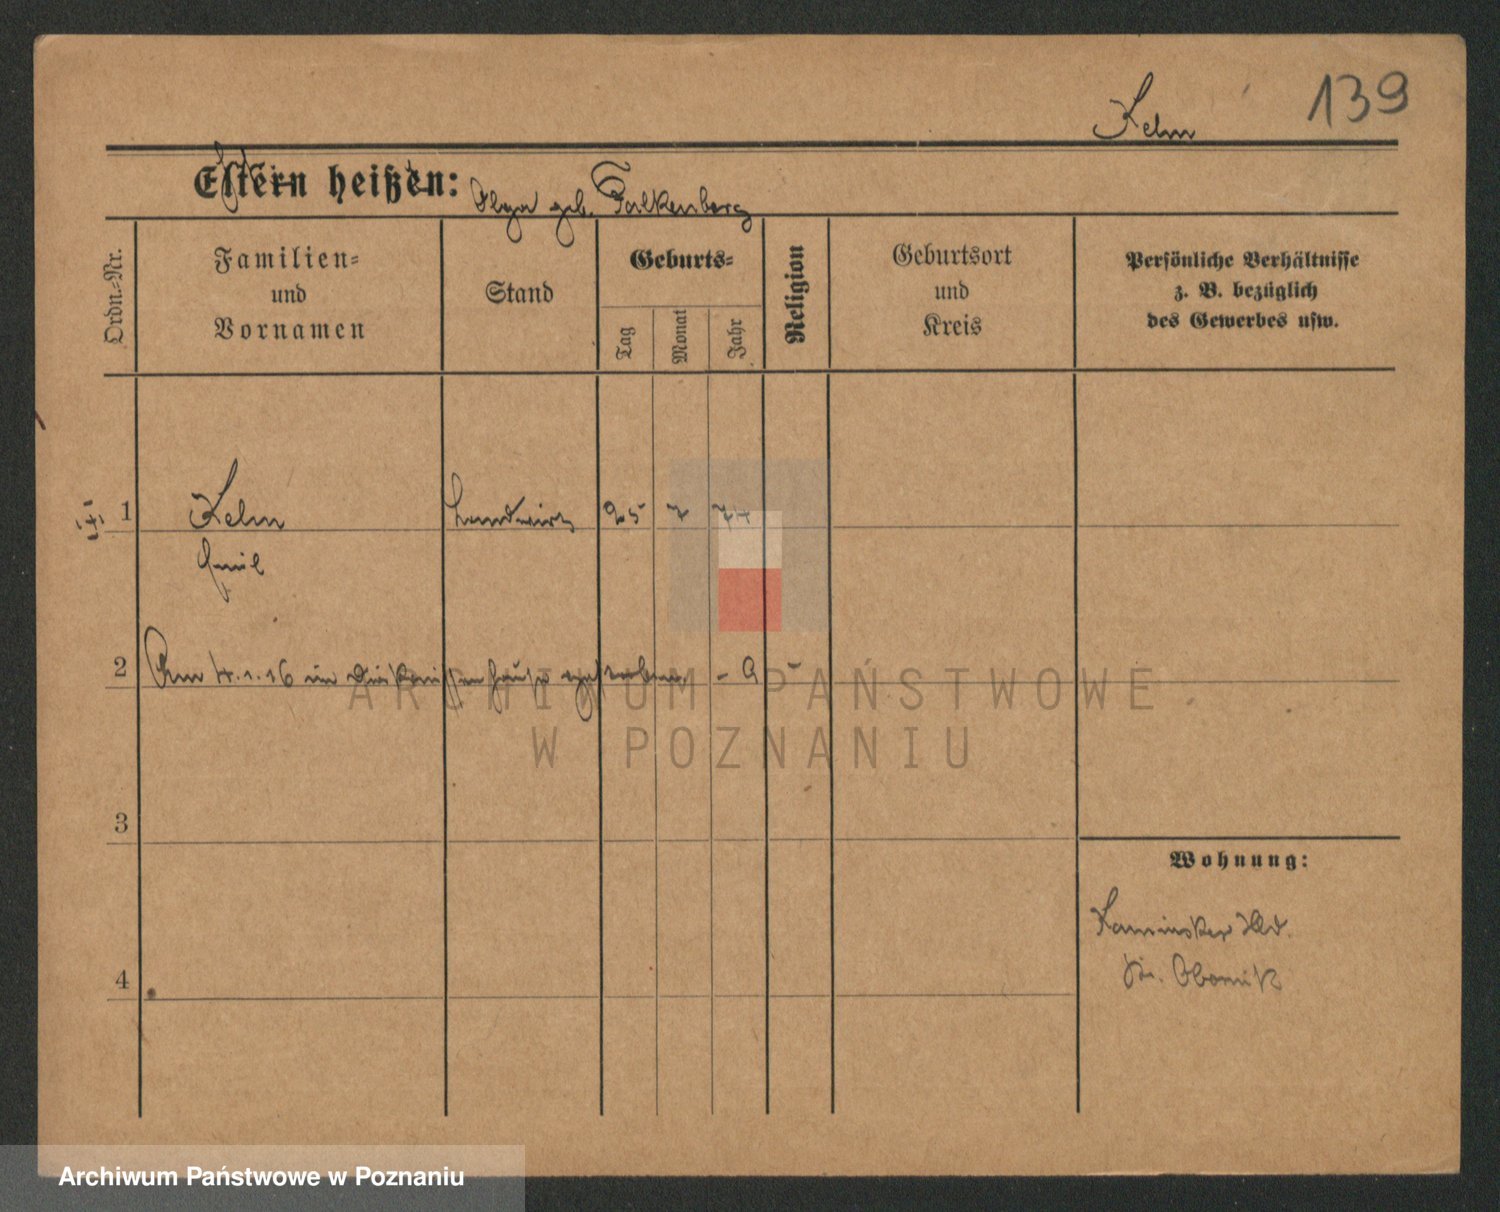 139
Kelm
Eltern heißen:
Olga geb. Falkenberg
Ordn.-Nr.
Familien-
und
Vornamen
Stand
Geburts-
Tag
Monat
Jahr
Religion
Geburtsort
und
Kreis
Persönliche Verhältnisse
z. B. bezüglich
des Gewerbes usw.
1 Kelm Landwirt 25 7 74
Emil
2 Am 4.1.16 im Diakonissenhause verstorben. - A -
3
4
Wohnung:
Kaminsker Hld.
Kr. Obornik
ARCHIWUM PAŃSTWOWE
W POZNANIU
Archiwum Państwowe w Poznaniu